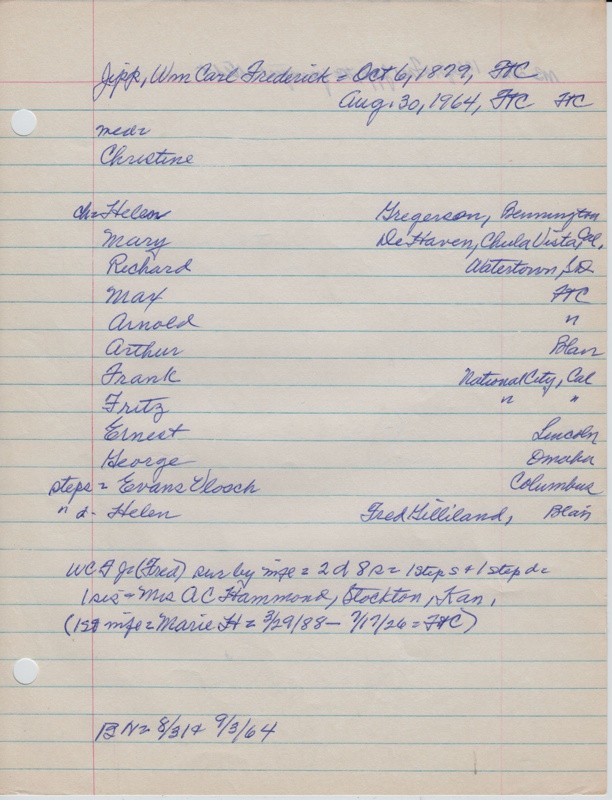 Jipp, Wm Carl Frederick = Oct 6, 1879, FtC
Aug. 30, 1964, FtC FtC
med=
Christine
ch= Helen Gregerson, Bennington
Mary DeHaven, Chula Vista, Cal,
Richard Watertown, S.D.
Max FtC
Arnold "
Arthur Blair
Frank National City, Cal
Fritz " "
Ernest Lincoln
George Omaha
steps = Evans Vlosch Columbus
" d- Helen Fred Gilliland, Blair
WCF J (Fred) sur by wife = 2 d 8 s = 1 step s + 1 step d=
1 sis = Mrs A C Hammond, Stockton, Kan,
(1st wife = Marie H = 3/29/88 - 7/17/26 = FtC)
BN= 8/31 & 9/3/64